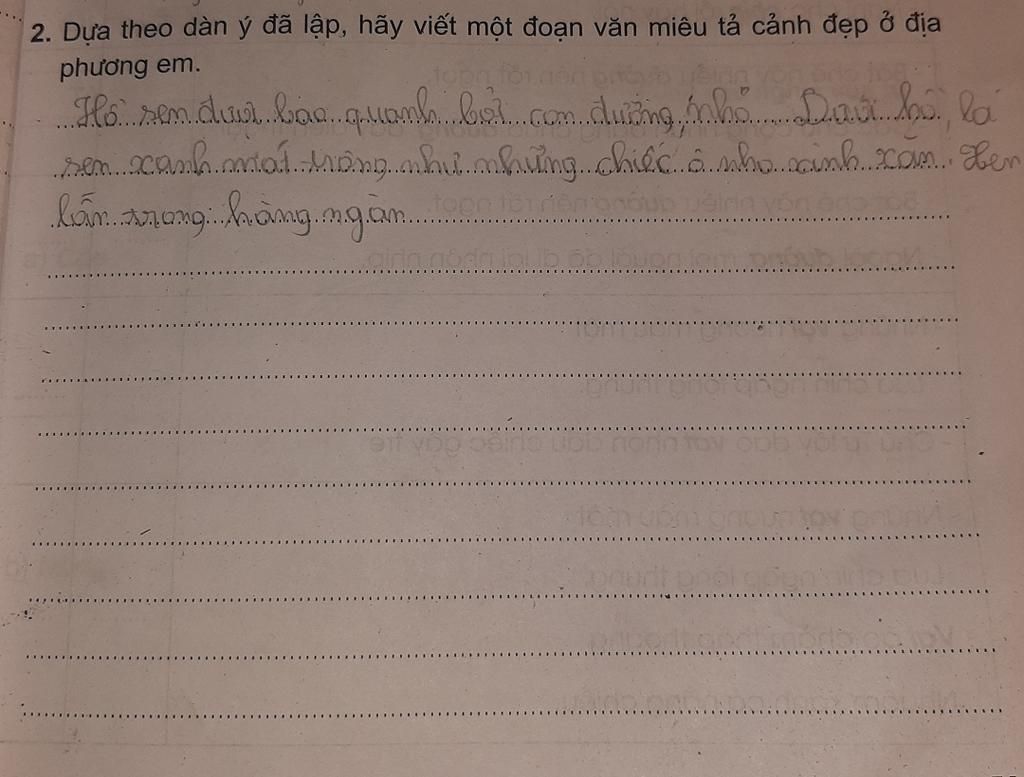 2. Dựa theo dàn ý đã lập, hãy viết một đoạn văn miêu tả cảnh đẹp ở địa
phương em.
Hồ sen được bao quanh bởi con đường nhỏ. Dưới hồ, lá
sen xanh mát trông như những chiếc ô nhỏ xinh xắn. Xen
lẫn trong hàng ngàn